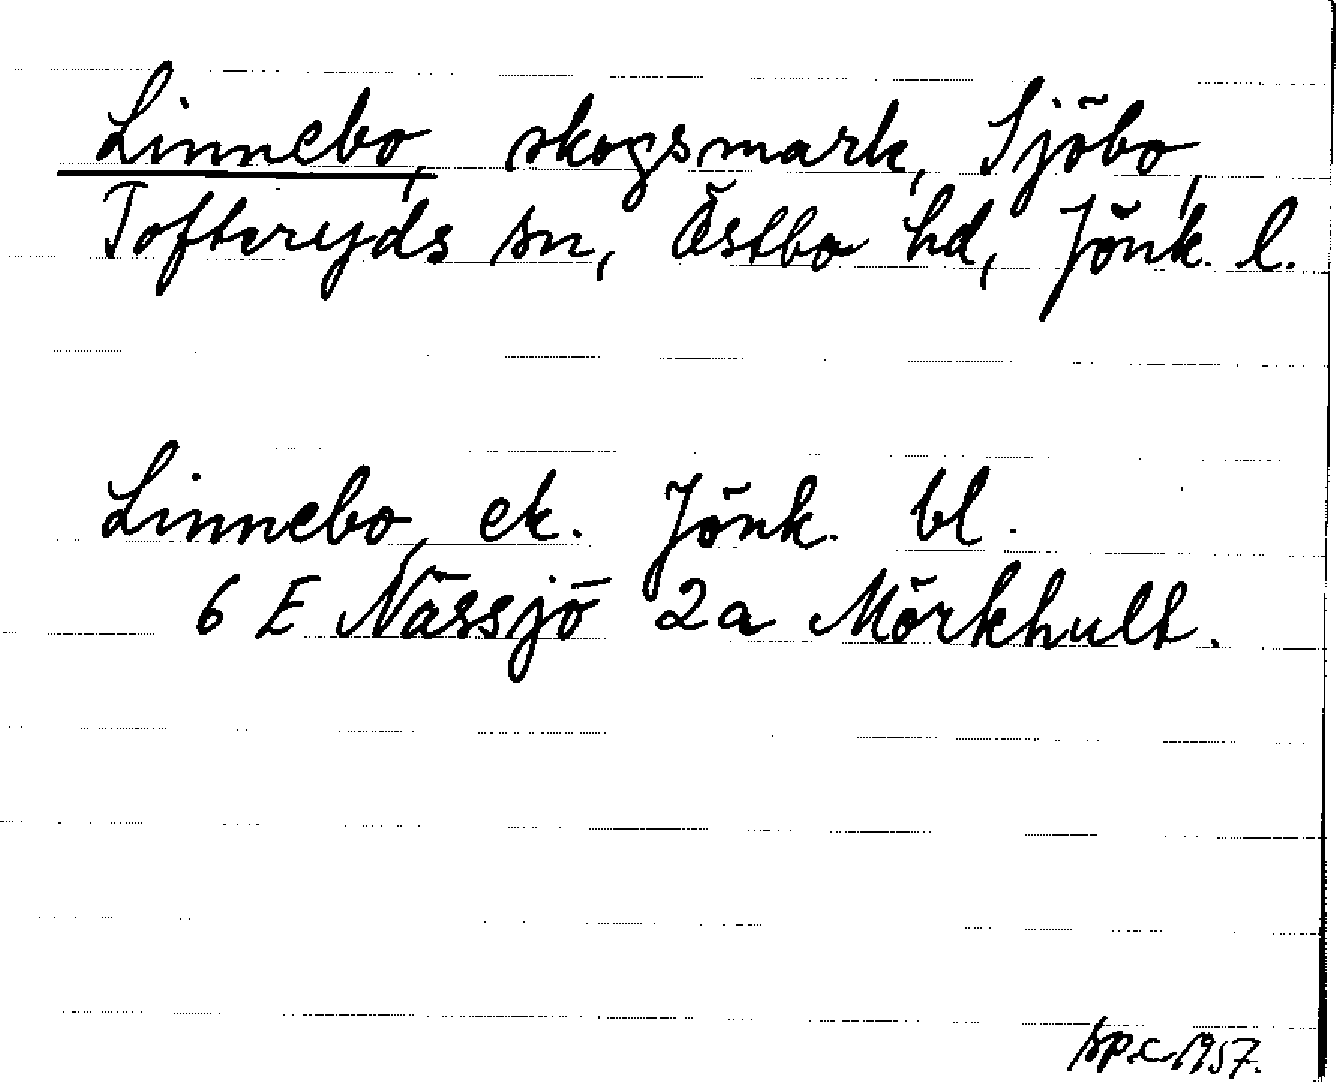 Linnebo, skogsmark, Sjöbo,
Tofteryds sn, Östbo hd, Jönk. l.
Linnebo, ek. Jönk. bl.
6 E Nässjö 2a Mörkhult.
sp.c. 1957.